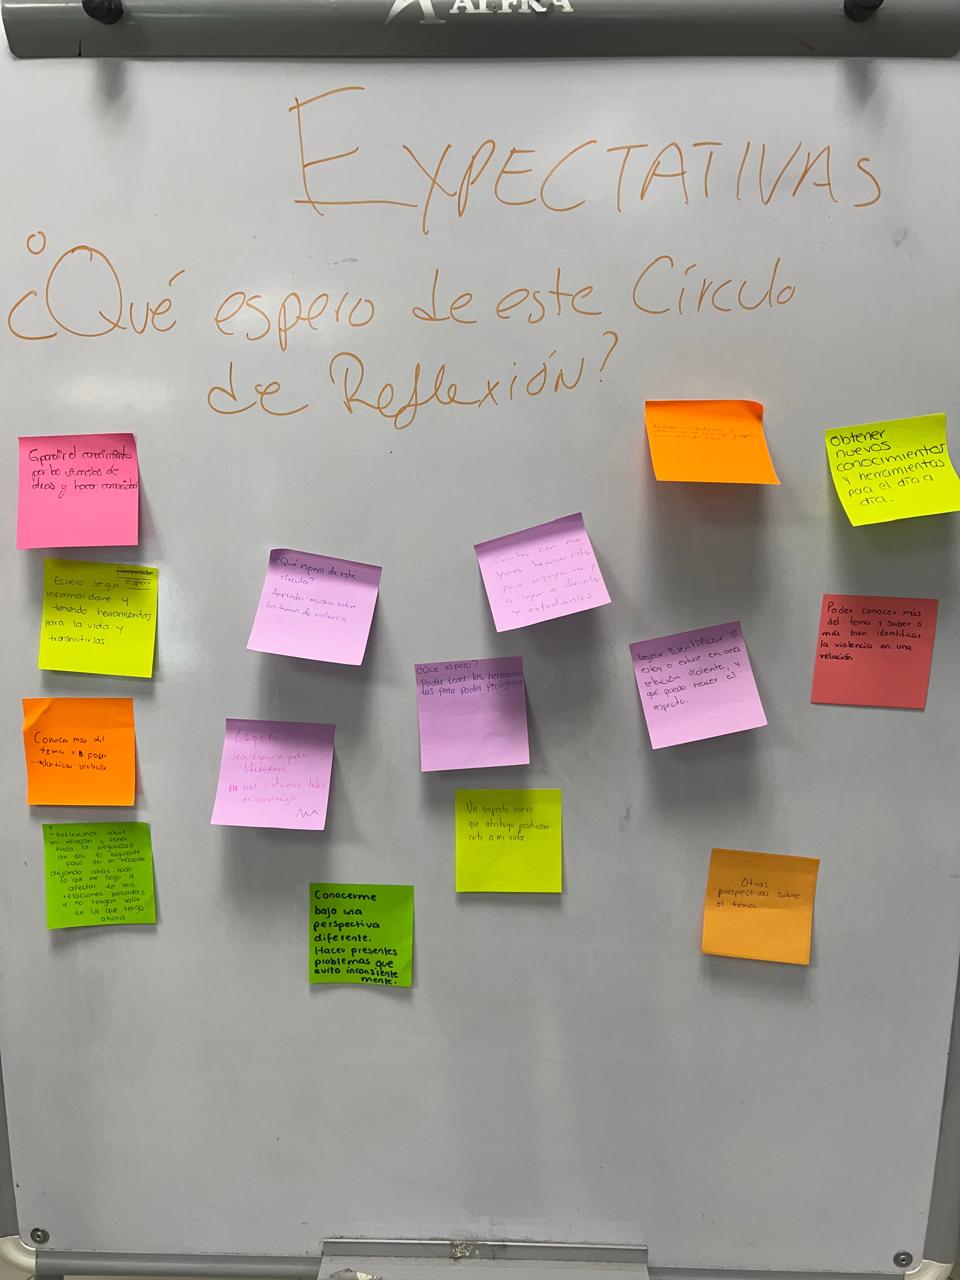 ALFRA
EXPECTATIVAS
¿Qué espero de este Círculo
de Reflexión?
el conocimiento
por las vivencias de
otros y hacer comunidad
Obtener
nuevos
conocimientos
y herramientas
para el día a
día.
Espero
Espero seguir
informandome y
teniendo herramientas
para la vida y
transmitirlas.
¿Qué espero de este
círculo?
Aprender mucho sobre
los temas de violencia
Contar con ma
yores herramientas
para
a docentes
y estudiantes
Poder conocer más
del tema y saber o
más bien identificar
la violencia en una
relación
Lograr identificar si
estoy o estuve en una
relación violenta, y
qué puedo hacer al
respecto.
¿Que espero?
Poder tener las herramien
tas para poder
Conocer más del
tema y poder
identificar violencia.
Espero
sea espacio para
liberarnos
nos sintamos todos
en confianza
Un aspecto nuevo
que atribuya positivam-
ente a mi vida
- Reflexionar sobre
mi relación y tener
toda la seguridad
de dar el siguiente
paso en mi relación
dejando atras todo
lo que me llego a
afectar en mis
relaciones pasadas
y no tengan valor
en la que tengo
ahora
Conocerme
bajo una
perspectiva
diferente.
Hacer presentes
problemas que
evito inconsiente
mente.
Otras
prespectivas sobre
el tema